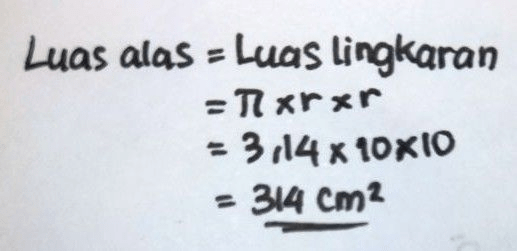 Luas alas = Luas lingkaran
= π × r × r
= 3,14 × 10 × 10
= 314 cm²